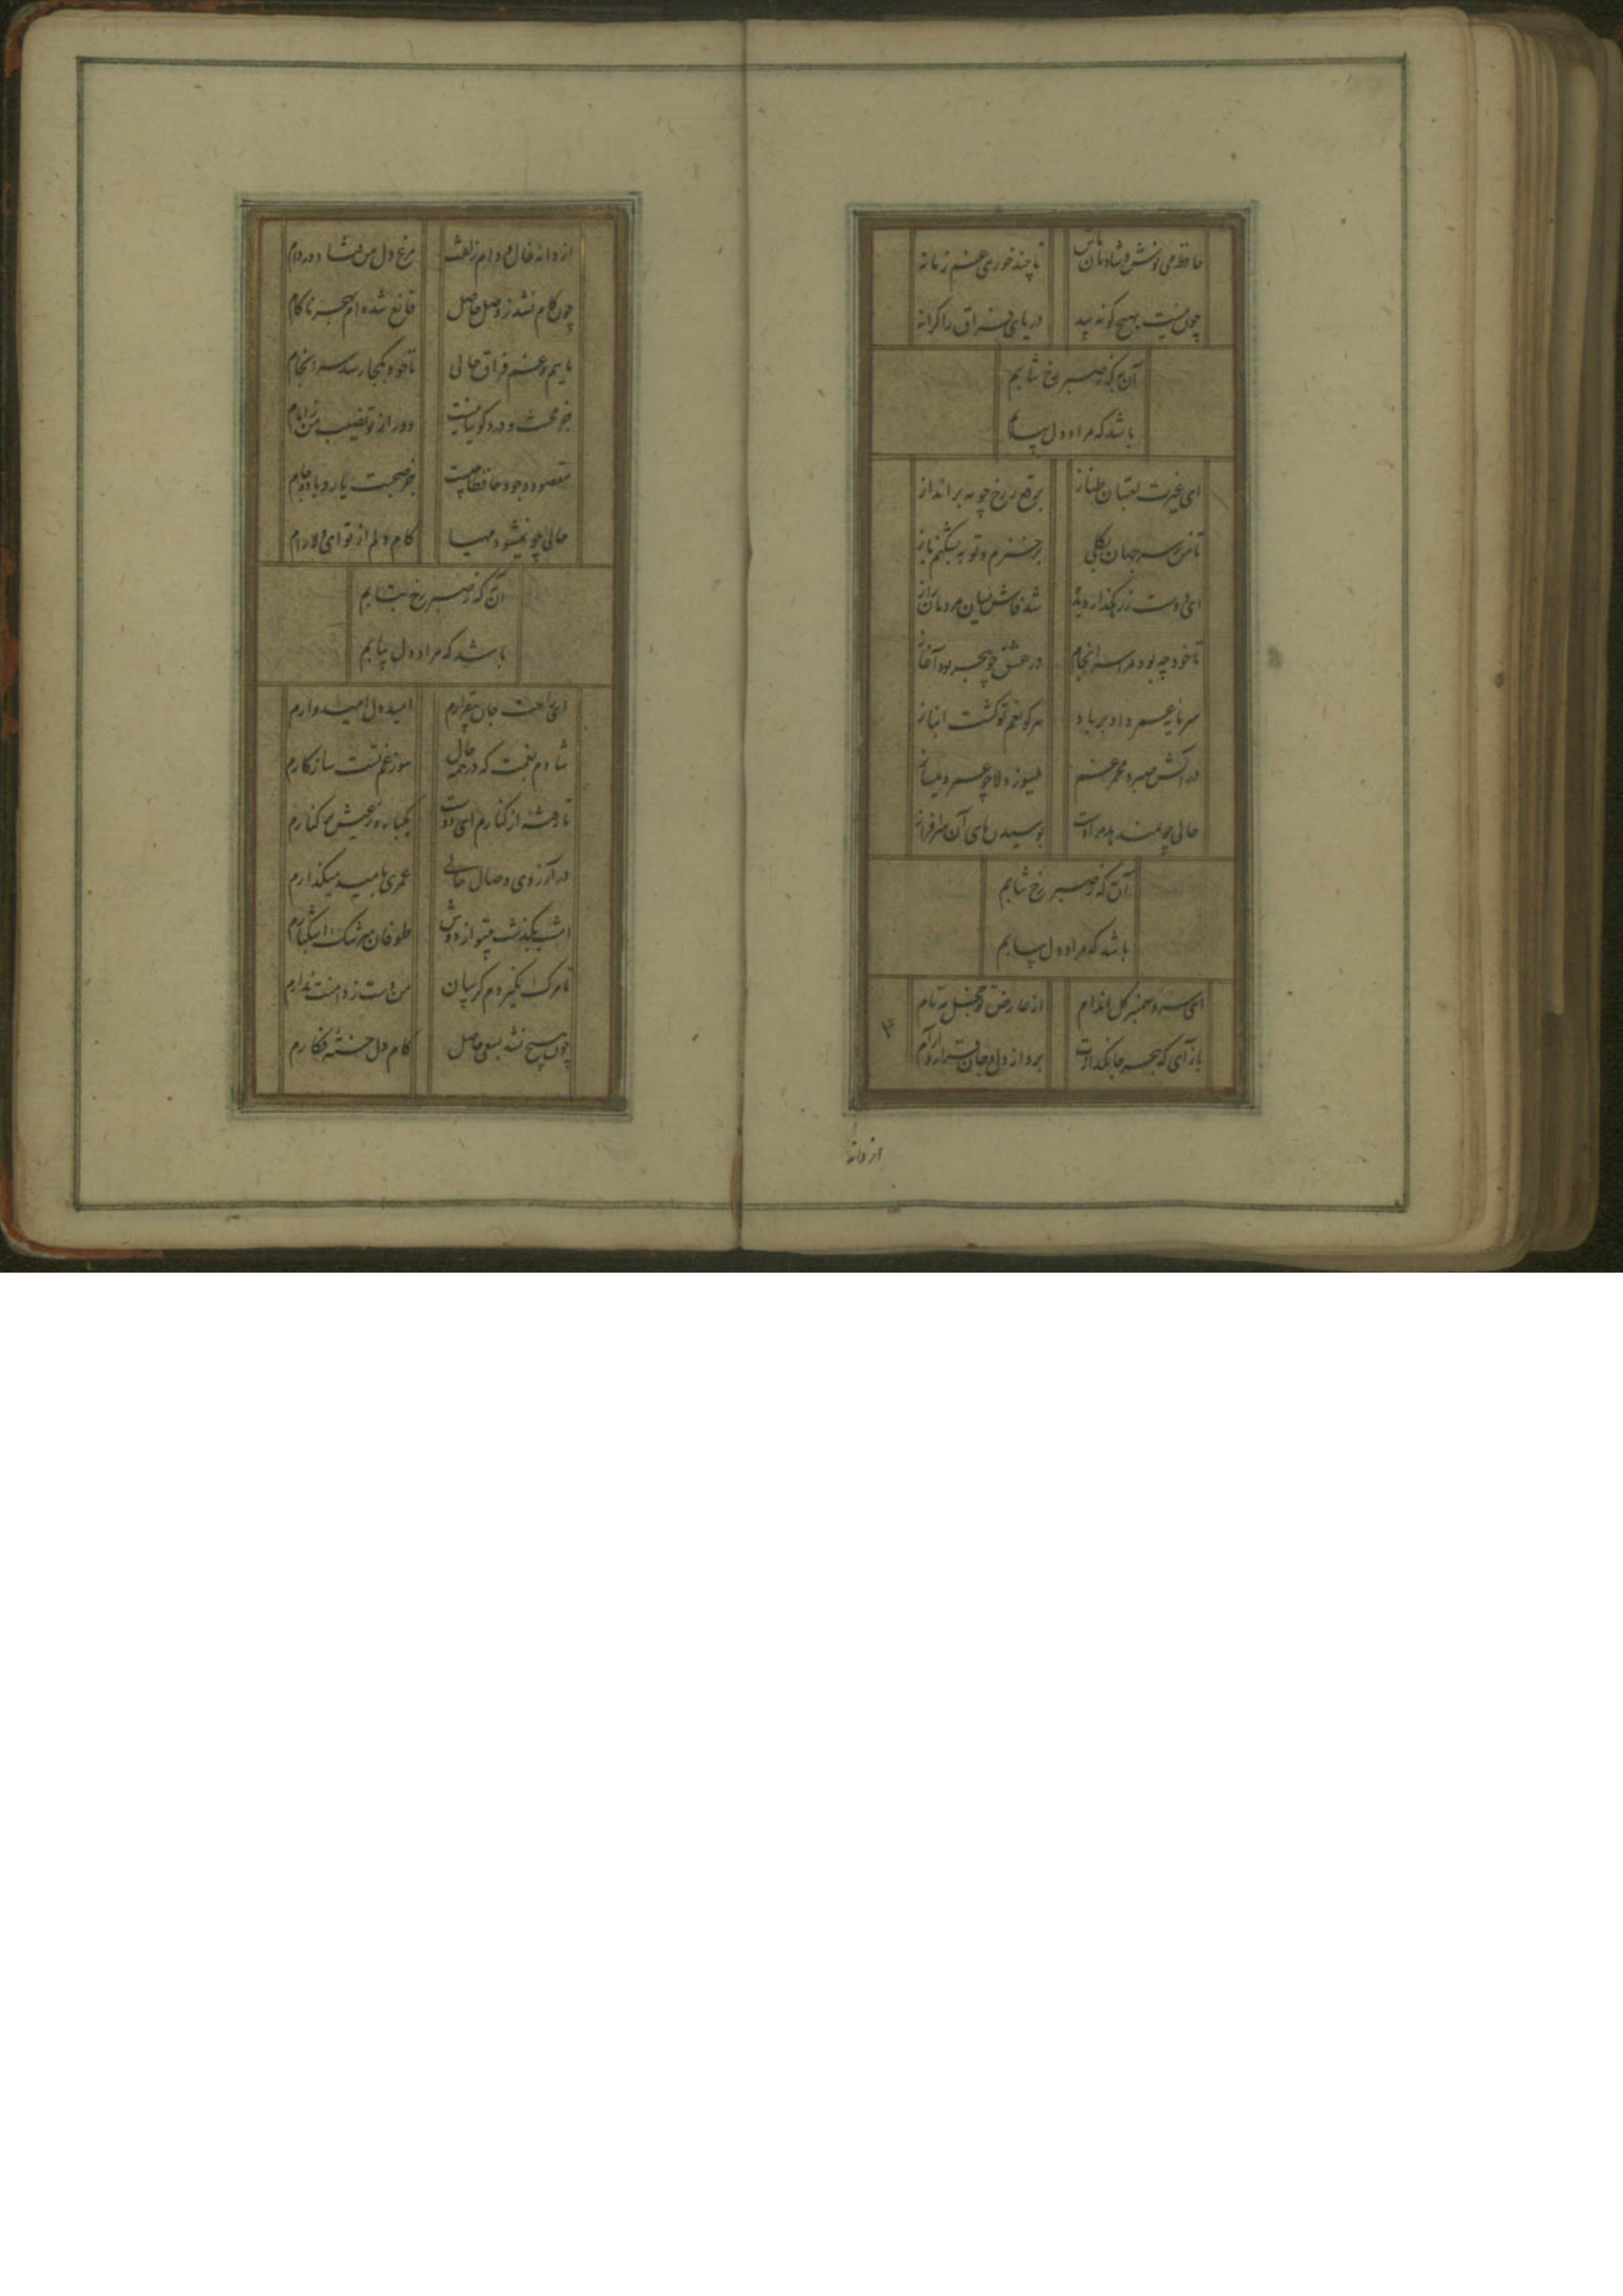 حافظ می نوش و شادمان باش تا چند خوری غم زمانه
چون نیست بهیچ گونه پید دریای فراق را کرانه
آن به که ز صبر رخ نتابیم
باشد که مراد دل بیابیم
ای غیرت لعبتان طناز برقع ز رخ چو مه برانداز
تا من ز سر جهان بکلی برخیزم و توبه بشکنم باز
ای دوست ز رهگذار دیده شد فاش میان مردمان راز
تا خود چه بود مرا سرانجام در عشق چو هجر بود آغاز
سرمایه عمر داد بر باد هر کو بغم تو گشت انباز
در آتش صبر و مجمر غم میسوز دلا چو عود و میساز
حالی چو نمیدهد مرادت بوسیدن پای آن سرافراز
آن به که ز صبر رخ نتابیم
باشد که مراد دل بیابیم
ای سرو سمنبر گل اندام از عارض تو خجل مه تام
باز آی که هجر جانگدازت برد از دل و جان قرار و آرام
از دانه
از دانه خال و دام زلفت مرغ دل من فتاد در دام
چون کام نشد ز وصل حاصل قانع شده ام بهجر ناکام
ماییم و غم فراق حالی تا خود بکجا رسد سرانجام
جز محنت و درد گوییا نیست دور از تو نصیب من ز ایام
مقصود وجود حافظا چیست جز صحبت یار و باده و جام
حالی چو نمیشود مهیا کام دلم از تو ای دلارام
آن به که ز صبر رخ نتابیم
باشد که مراد دل بیابیم
ای راحت جان بیقرارم امید دل امیدوارم
شادم بغمت که در همه حال سوز غم تست سازگارم
تا رفته از کنارم ای دوست یکباره ز عیش بر کنارم
در آرزوی وصال حالی عمری بامید میگذارم
امشب بگذشت بیتو از دوش طوفان سرشک اشکبارم
تا مرگ نگیردم گریبان من دست ز دامنت ندارم
چون هیچ نشد بسعی حاصل کام دل خسته فکارم